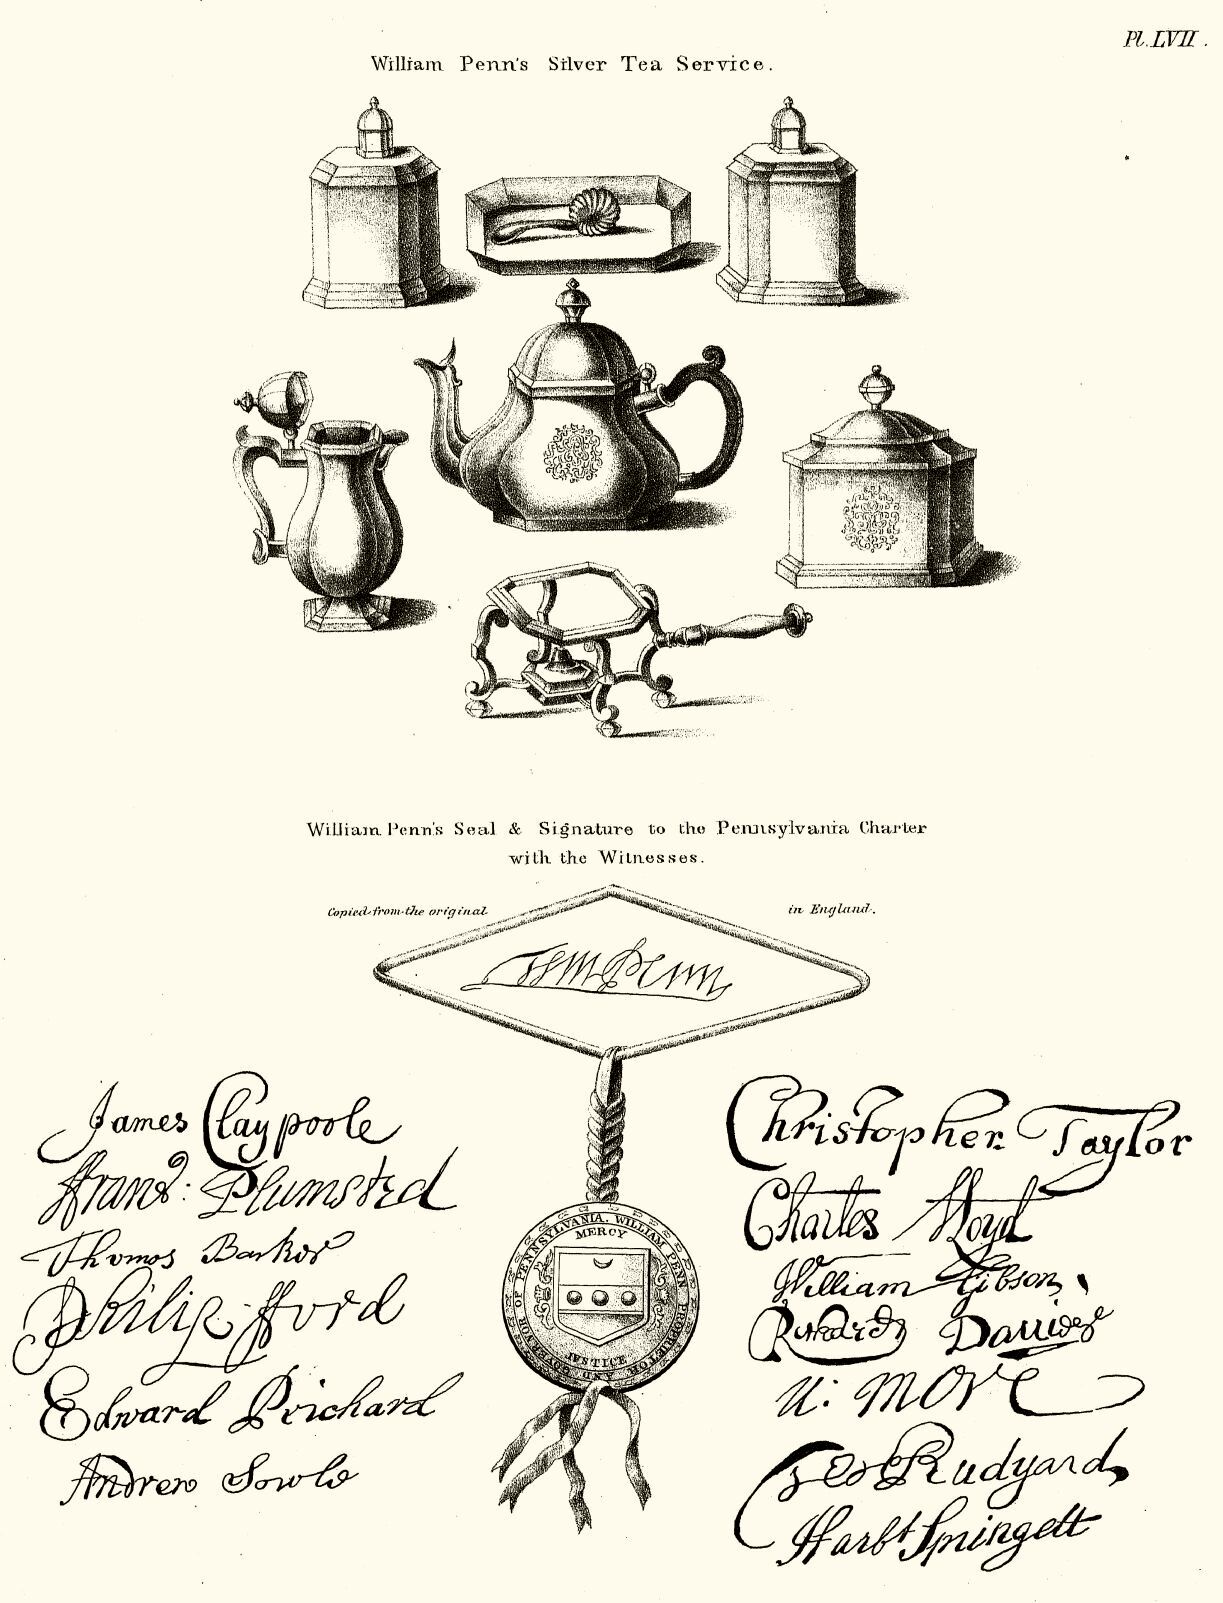 Pl. LVII.
William Penn's Silver Tea Service.
William Penn's Seal & Signature to the Pennsylvania Charter
with the Witnesses.
Copied from the original in England.
Wm Penn
James Claypoole
ffranc: Plumsted
Thomas Barker
Philip fford
Edward Prichard
Andrew Sowle
Christopher Taylor
Charles Lloyd
William Gibson
Richard Davies
N: More
Geo Rudyard
Harbt Springett
MERCY
JUSTICE
WILLIAM PENN PROPRIETOR AND GOVERNOR OF PENNSYLVANIA.